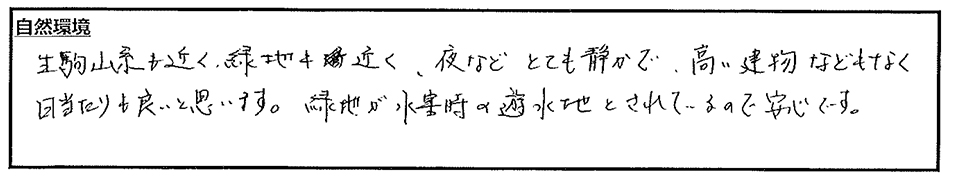 自然環境
生駒山系も近く、緑地も近く、夜などとても静かで、高い建物などもなく
日当たりも良いと思います。緑地が水害時の遊水地とされているので安心です。